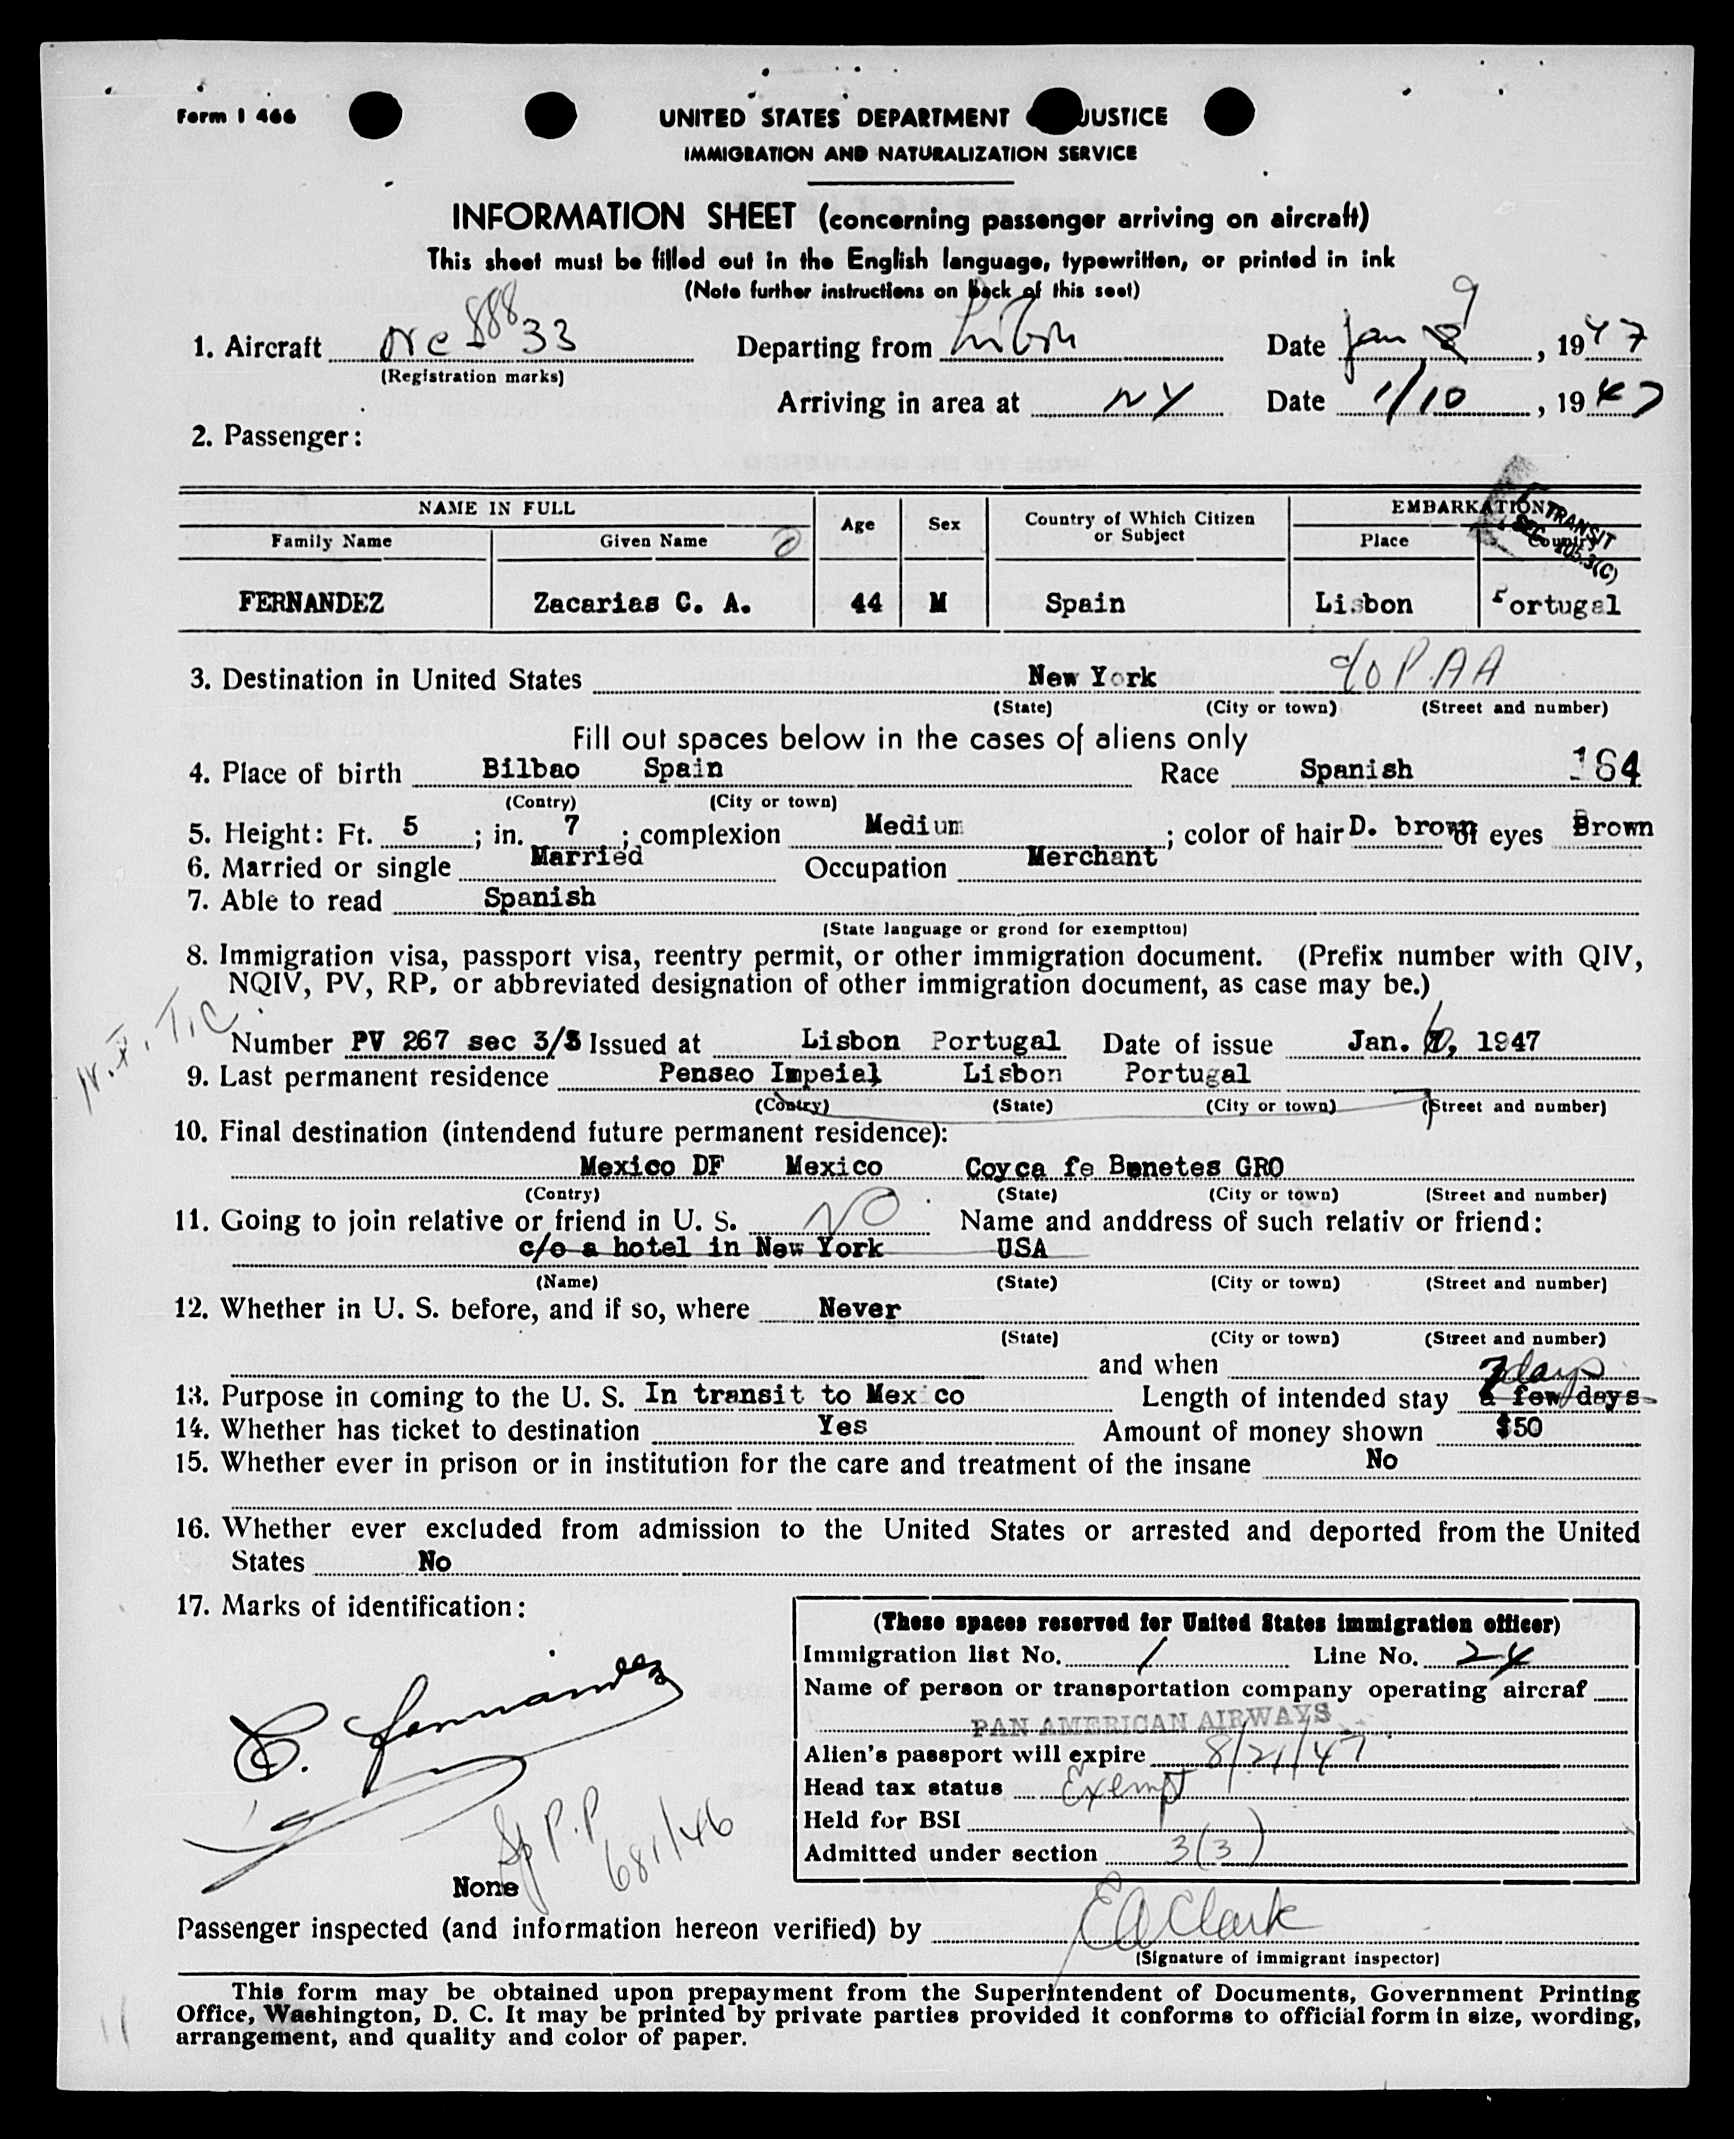 Form I 466
UNITED STATES DEPARTMENT JUSTICE
IMMIGRATION AND NATURALIZATION SERVICE
INFORMATION SHEET (concerning passenger arriving on aircraft)
This sheet must be filled out in the English language, typewritten, or printed in ink
(Note further instructions on back of this seet)
1. Aircraft NC 88833 Departing from Lisbon Date Jan 8 9, 1947
(Registration marks)
Arriving in area at NY Date 1/10, 1947
2. Passenger:
NAME IN FULL Age Sex Country of Which Citizen or Subject EMBARKATION
Family Name Given Name Place Country
TRANSIT
SEC. 105.3(C)
FERNANDEZ Zacarias C. A. 44 M Spain Lisbon Portugal
3. Destination in United States New York c/o P.A A
(State) (City or town) (Street and number)
Fill out spaces below in the cases of aliens only
4. Place of birth Bilbao Spain Race Spanish 164
(Contry) (City or town)
5. Height: Ft. 5; in. 7; complexion Medium; color of hair D. brown of eyes Brown
6. Married or single Married Occupation Merchant
7. Able to read Spanish
(State language or grond for exemption)
8. Immigration visa, passport visa, reentry permit, or other immigration document. (Prefix number with QIV,
NQIV, PV, RP, or abbreviated designation of other immigration document, as case may be.)
Number PV 267 sec 3/3 Issued at Lisbon Portugal Date of issue Jan. 6, 1947
9. Last permanent residence Pensao Impeial Lisbon Portugal
(Contry) (State) (City or town) (Street and number)
10. Final destination (intendend future permanent residence):
Mexico DF Mexico Coyca fe Benetes GRO
(Contry) (State) (City or town) (Street and number)
11. Going to join relative or friend in U. S. NO Name and anddress of such relativ or friend:
c/o a hotel in New York USA
(Name) (State) (City or town) (Street and number)
12. Whether in U. S. before, and if so, where Never
(State) (City or town) (Street and number)
and when
7 days
13. Purpose in coming to the U. S. In transit to Mexico Length of intended stay a few days
14. Whether has ticket to destination Yes Amount of money shown $50
15. Whether ever in prison or in institution for the care and treatment of the insane No
16. Whether ever excluded from admission to the United States or arrested and deported from the United
States No
17. Marks of identification:
(These spaces reserved for United States immigration officer)
Immigration list No. 1 Line No. 24
Name of person or transportation company operating aircraf
PAN AMERICAN AIRWAYS
Alien's passport will expire 8/21/47
Head tax status Exempt
Held for BSI
Admitted under section 3(3)
C. Fernandez
Sp P.P
681/46
None
Passenger inspected (and information hereon verified) by EA Clark
(Signature of immigrant inspector)
This form may be obtained upon prepayment from the Superintendent of Documents, Government Printing
Office, Washington, D. C. It may be printed by private parties provided it conforms to official form in size, wording,
arrangement, and quality and color of paper.